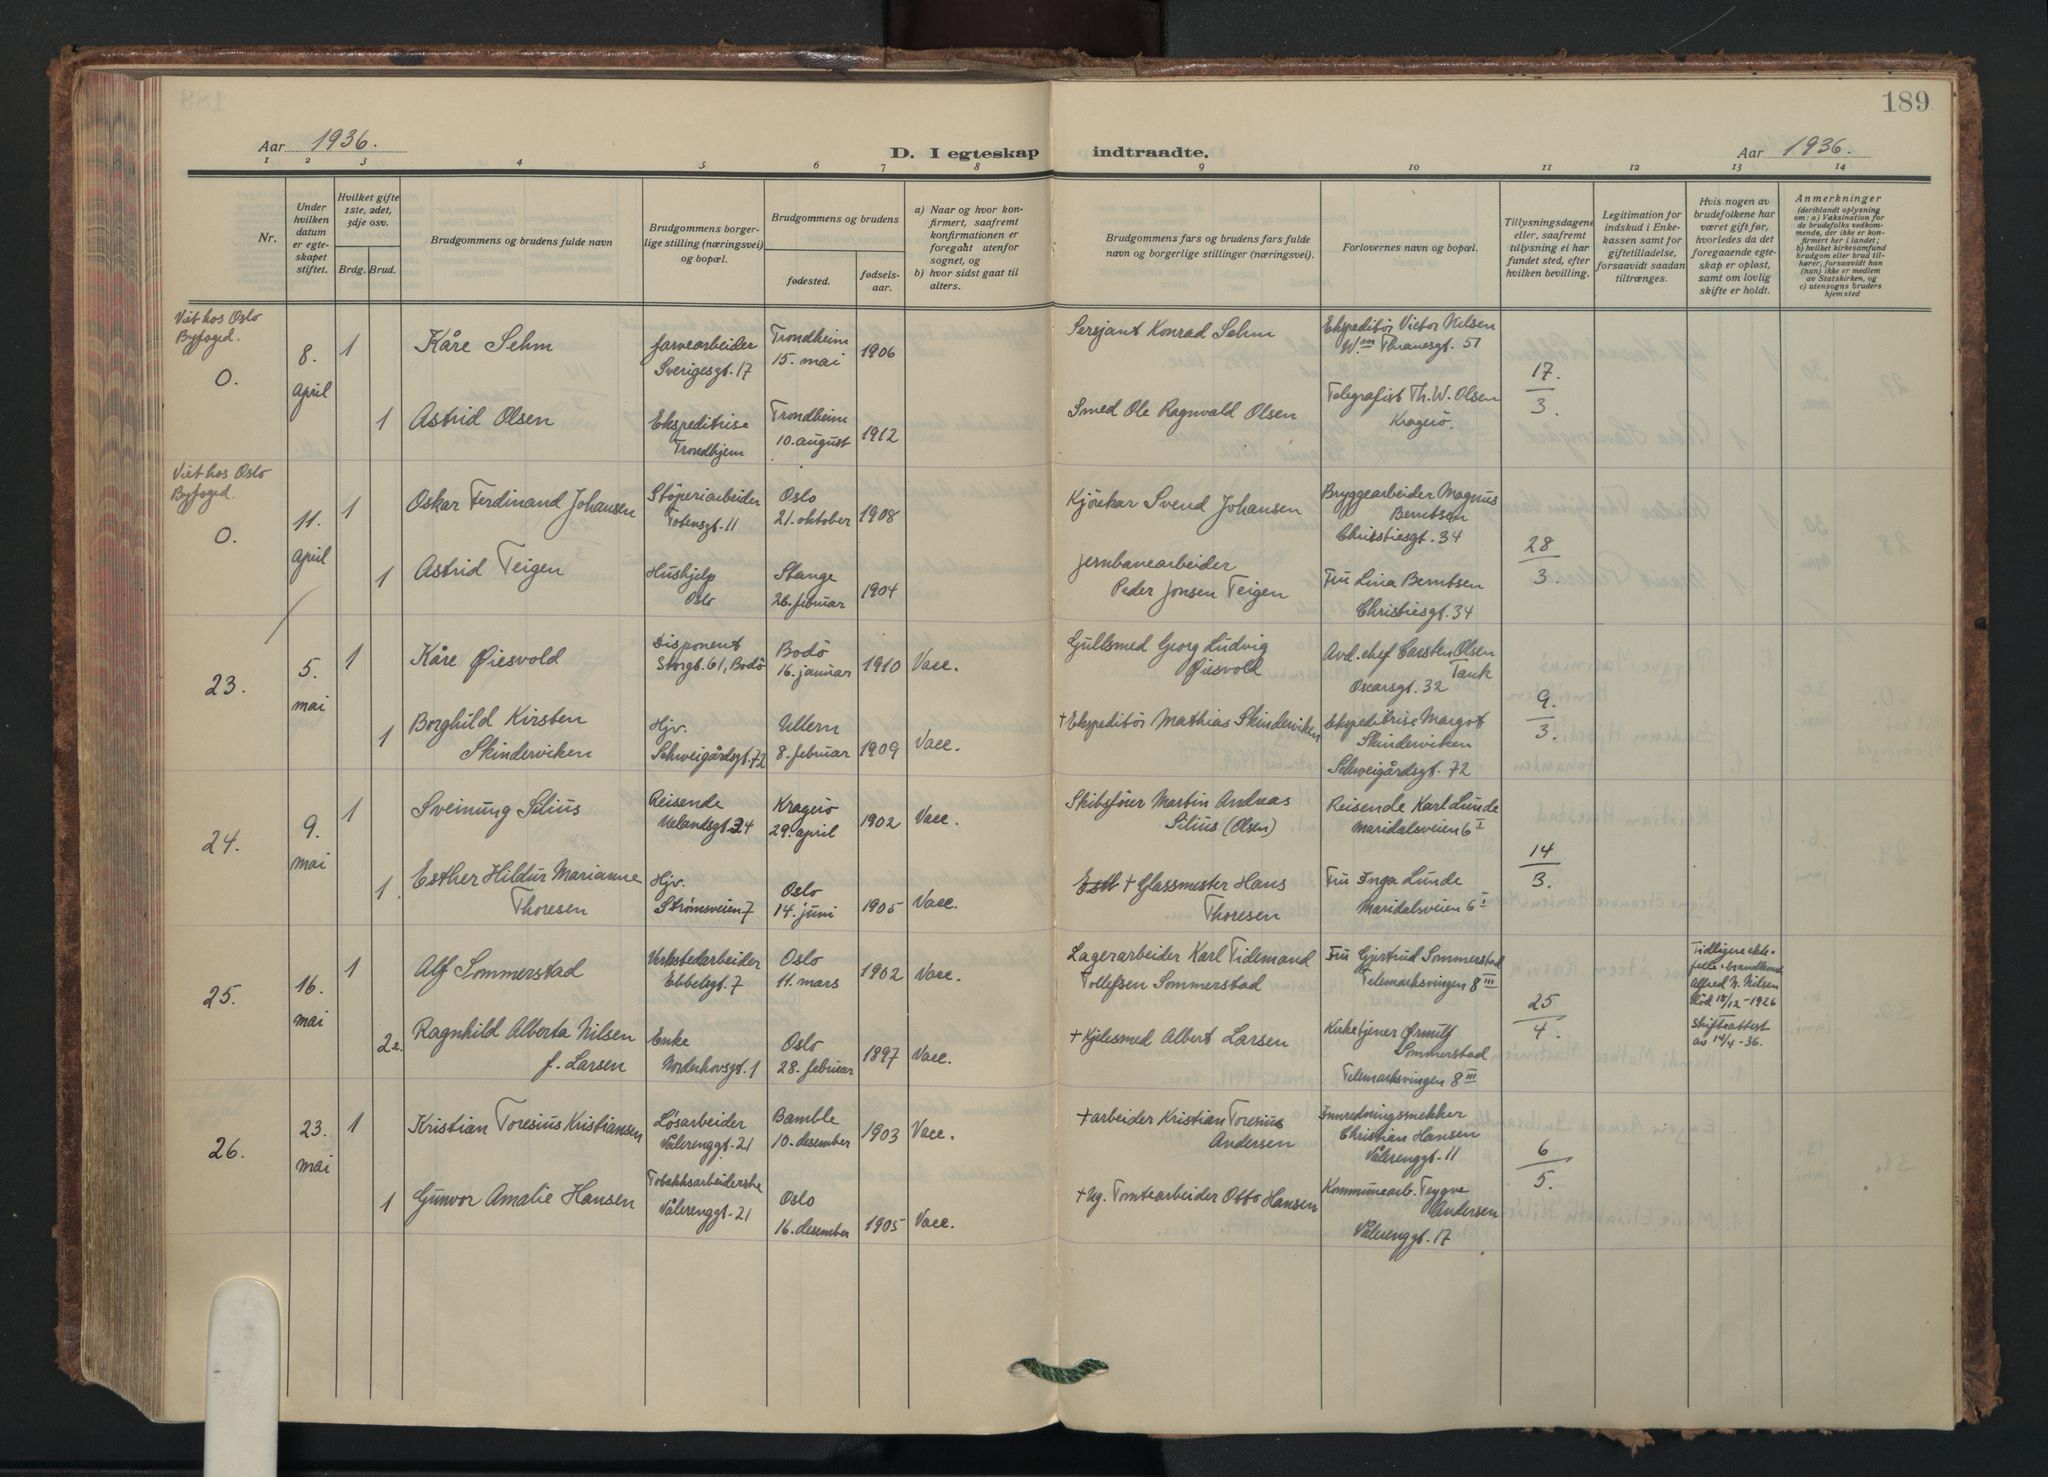 189
Aar 1936.
D. I egteskap indtraadte.
Aar 1936.
1 2 3 4 5 6 7 8 9 10 11 12 13 14
Nr.
Under hvilken datum er egteskapet stiftet.
Hvilket gifte 1ste, 2det, 3dje osv.
Brdg. Brud.
Brudgommens og brudens fulde navn
Brudgommens borgerlige stilling (næringsvei) og bopæl.
Brudgommens og brudens
fødested.
fødselsaar.
a) Naar og hvor konfirmert, saafremt konfirmationen er foregaat utenfor sognet, og
b) hvor sidst gaat til alters.
Brudgommens fars og brudens fars fulde navn og borgerlige stillinger (næringsvei).
Forlovernes navn og bopæl.
Tillysningsdagene eller, saafremt tillysning ei har fundet sted, efter hvilken bevilling.
Legitimation for indskud i Enkekassen samt for giftetilladelse, forsaavidt saadan tiltrænges.
Hvis nogen av brudefolkene har været gift før, hvorledes da det foregaaende egteskap er opløst, samt om lovlig skifte er holdt.
Anmerkninger
(deriblandt oplysning om: a) Vaksination for de brudefolks vedkommende, der ikke er konfirmert her i landet; b) hvilket kirkesamfund brudgom eller brud tilhører, forsaavidt han (hun) ikke er medlem av Statskirken, og c) utensogns bruders hjemsted
Viet hos Oslo Byfoged.
0.
8. April
1 Kåre Sehm
farvearbeider Sverigesgt. 17
Trondheim 15. mai 1906
Sersjant Konrad Sehm
Ekspeditør Victor Nilsen Wm Thranesgt. 51
17./3.
1 Astrid Olsen
Ekspeditrise Trondhjem
Trondheim 10. august 1912
Smed Ole Ragnvald Olsen
Telegrafist Th. W. Olsen Kragerö.
Viet hos Oslo Byfoged.
0.
11. April
1 Oskar Ferdinand Johansen
Støperiarbeider Totensgt. 11
Oslo 21. oktober 1908
Kjörekar Svend Johansen
Bryggearbeider Magnus Berntsen Christiesgt. 34
28/3.
1 Astrid Teigen
Hushjelp Oslo
Stange 26. februar 1904
Jernbanearbeider Peder Jonsen Teigen
Fru Lina Berntsen Christiesgt. 34
23.
5. mai
1 Kåre Øiesvold
Disponent Storgt. 61, Bodö
Bodö 16. januar 1910 Vacc.
Gullsmed Georg Ludvig Øiesvold
Avd. chef Carsten Olsen Tank Oscarsgt. 32
9./3.
1 Borghild Kirsten Skinderviken
Hjv. Schweigårdsgt. 72
Ullern 8. februar 1909 Vacc.
+ Ekspeditör Mathias Skinderviken
Ekspeditrise Margot Skinderviken Schweigårdsgt. 72
24.
9. mai
1 Sveinung Silius
Reisende Uelandsgt. 34
Kragerö 29. april 1902 Vacc.
Skibsförer Martin Andreas Silius (Olsen)
Reisende Karl Lunde Maridalsveien 6 I
14/3.
1. Esther Hildur Marianne Thoresen
Hjv. Strømsveien 7
Oslo 14. juni 1905 Vacc.
+ Glassmester Hans Thoresen
Fru Inga Lunde Maridalsveien 6 I
25.
16. mai
1 Alf Sommerstad
Verkstedarbeider Ebbelsgt. 7
Oslo 11. mars 1902 Vacc.
Lagerarbeider Karl Tidemand Tollefsen Sommerstad
Fru Gjertrud Sommerstad Telemarksvingen 8 III
25/4.
Tidligere ektefelle, brandkonst. Alfred N. Nilsen död 15/12-1926 Skifteattest av 14/4-36.
2. Ragnhild Alberta Nilsen f. Larsen
Enke Norderhovsgt. 1
Oslo 28. februar 1897 Vacc.
+ Kjelesmed Albert Larsen
Kirketjener Ørnulf Sommerstad Telemarksvingen 8 III
26.
23. mai
1 Kristian Toresius Kristiansen
Løsarbeider Vålerenggt. 21
Bamble 10. desember 1903 Vacc.
+ arbeider Kristian Toresius Andersen
Innredningssnekker Christian Hansen Vålerenggt. 11
6/5.
1 Gunvor Amalie Hansen
Tobakksarbeiderske Vålerenggt. 21
Oslo 16. desember 1905 Vacc.
+ Ug. Tomtearbeider Otto Hansen
Kommunearb. Trygve Andersen Vålerenggt. 17